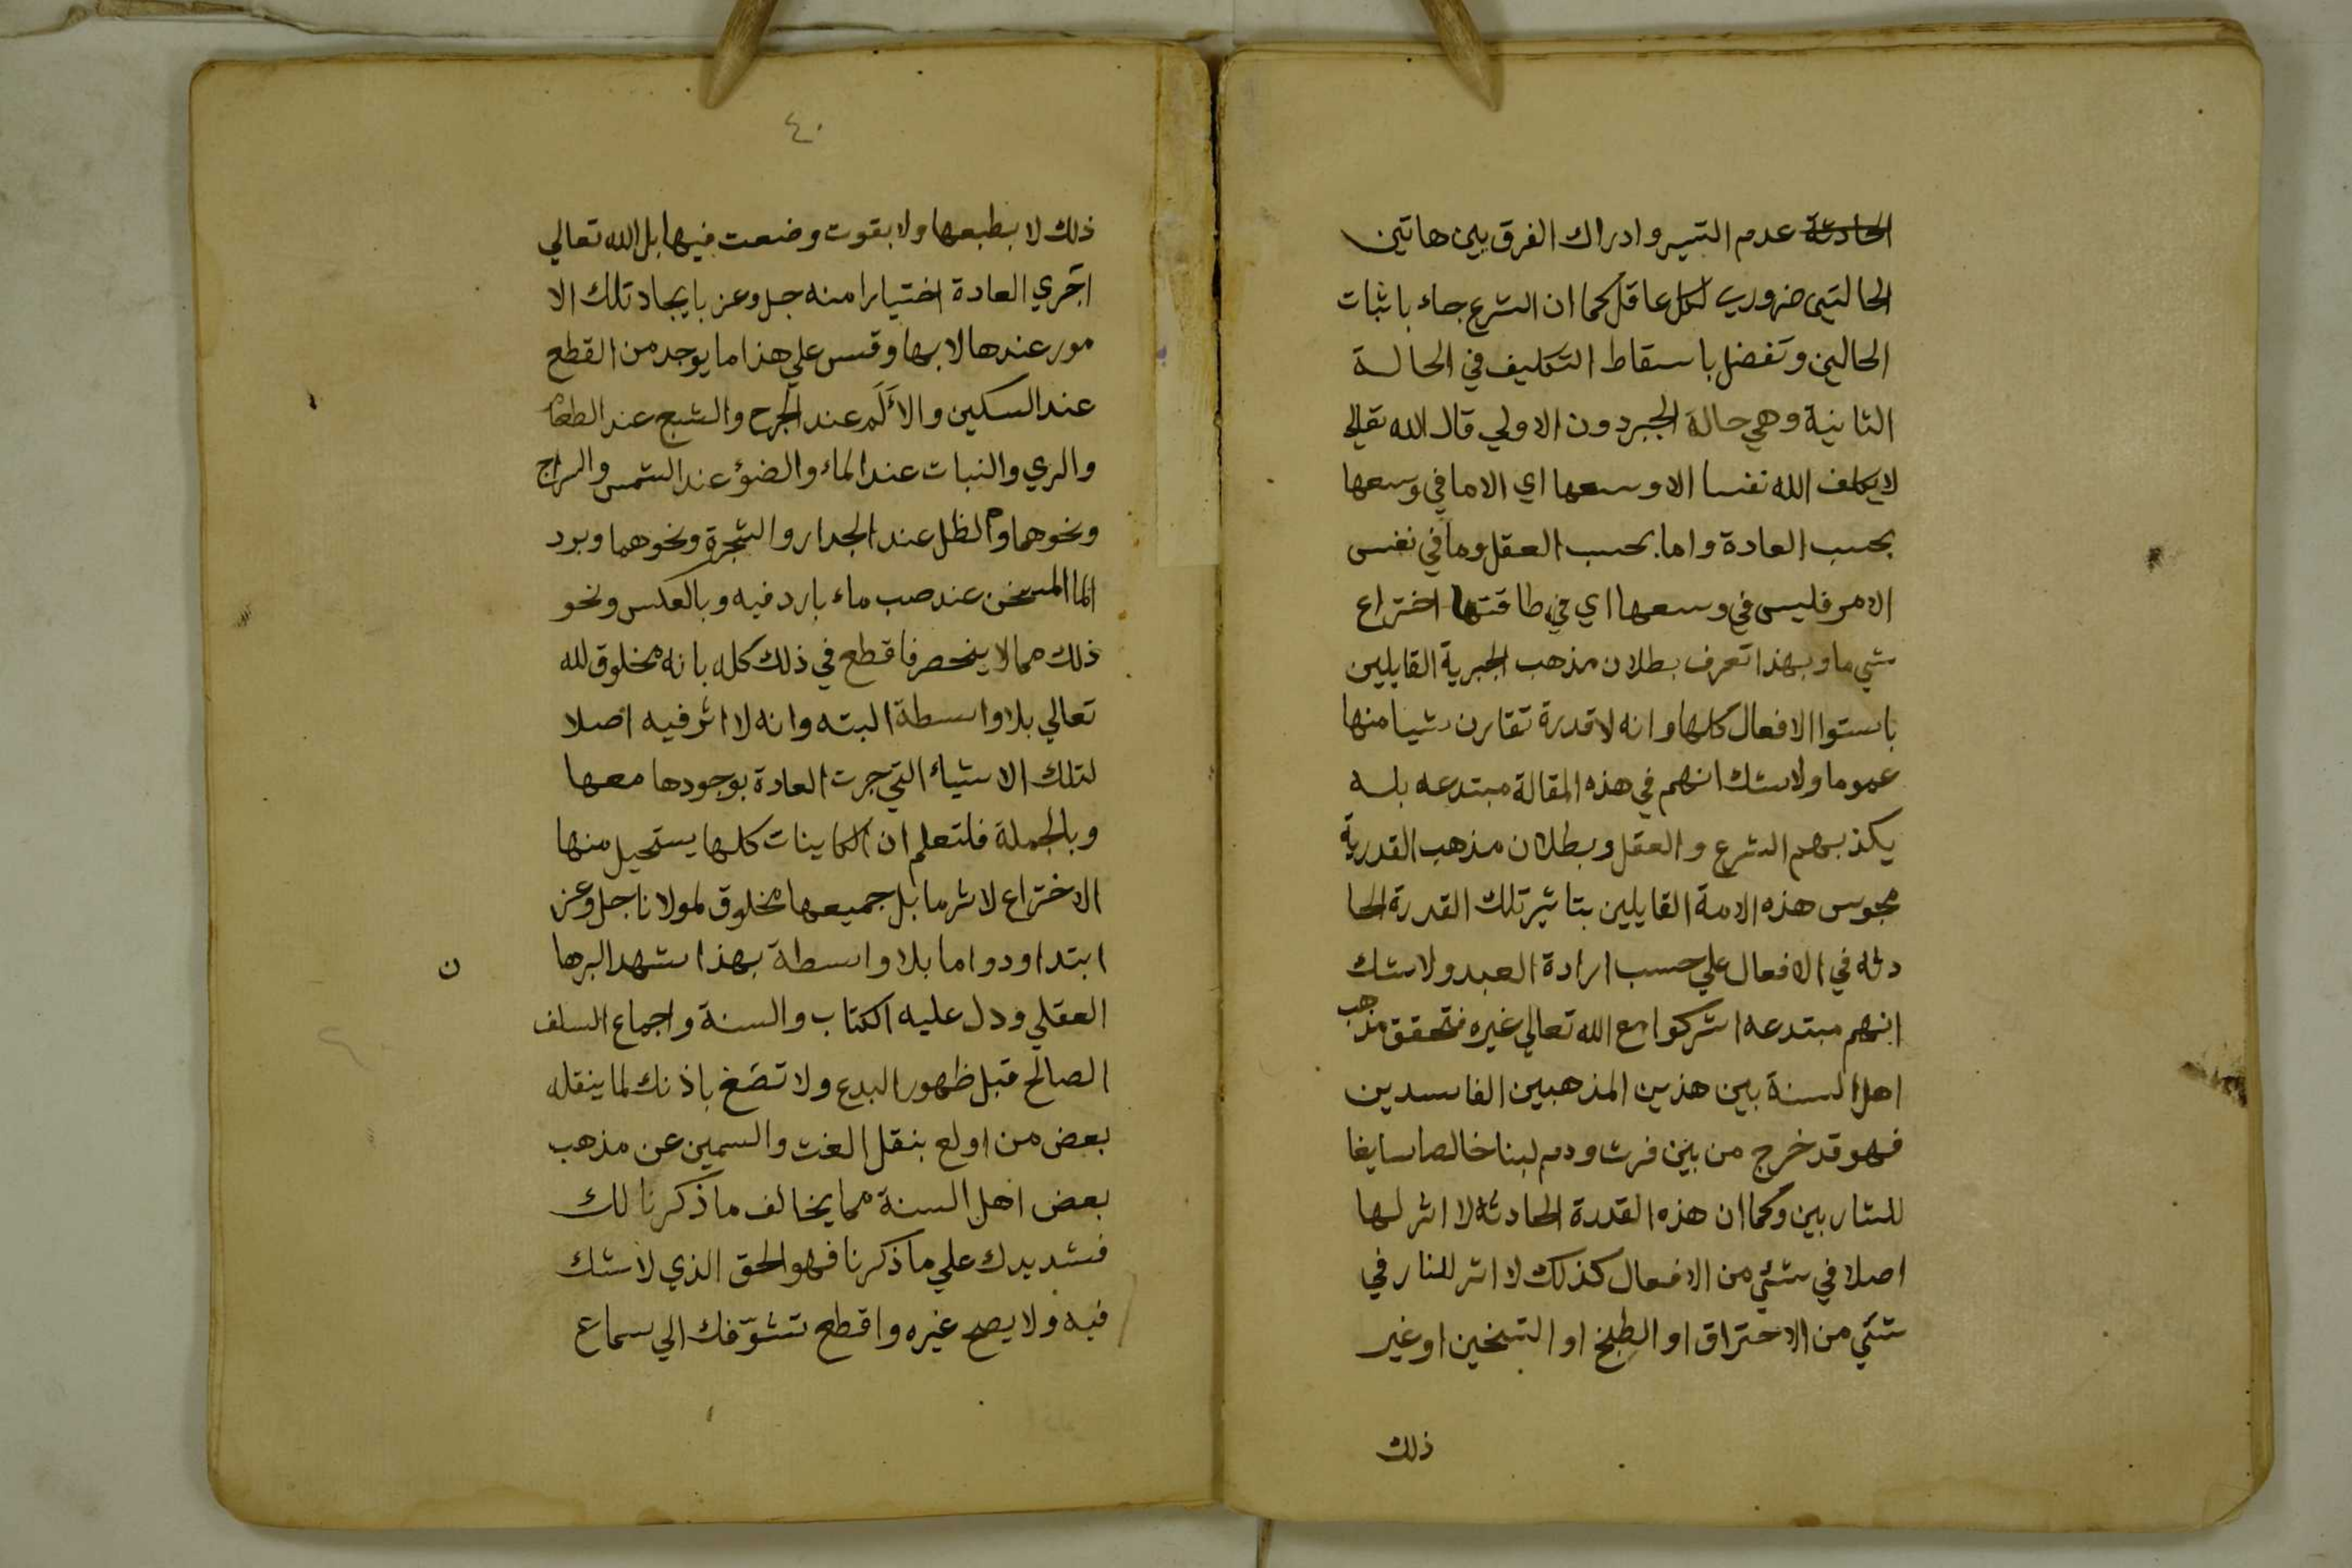 الحادثة عدم التيسر وادراك الفرق بين هاتين
الحالتين ضروري لكل عاقل كما ان الشرع جاء باثبات
الحالين وتفضل باسقاط التكليف في الحالة
الثانية وهي حالة الجبر دون الاولي قال الله تعالى
لا يكلف الله نفسا الا وسعها اي الا ما في وسعها
بحسب العادة واما بحسب العقل وما في نفس
الامر فليس في وسعها اي في طاقتها اختراع
شي ما وبهذا تعرف بطلان مذهب الجبرية القايلين
باستوا الافعال كلها وانه لا قدرة تقارن شيا منها
عموما ولا شك انهم في هذه المقالة مبتدعه بله
يكذبهم الشرع والعقل وبطلان مذهب القدرية
مجوس هذه الامة القايلين بتاثير تلك القدرة الحا
دثه في الافعال علي حسب ارادة العبد ولا شك
انهم مبتدعه اشركوا مع الله تعالي غيره فتحقق مذهب
اهل السنة بين هذين المذهبين الفاسدين
فهو قد خرج من بين فرث ودم لبنا خالصا سايغا
للشاربين وكما ان هذه القدرة الحادثة لا اثر لها
اصلا في شئي من الافعال كذلك لا اثر للنار في
شئي من الاحتراق او الطبخ او التسخين او غير
ذلك
٤٠
ذلك لا بطبعها ولا بقوت وضعت فيها بل الله تعالي
اجري العادة اختيارا منه جل وعز بايجاد تلك الا
مور عندها لا بها وقس علي هذا ما يوجد من القطع
عند السكين والألم عند الجرح والشبع عند الطعام
والري والنبات عند الماء والضؤ عند الشمس والسراج
ونحوهما والظل عند الجدار والشجرة ونحوهما وبرد
الما المسخن عند صب ماء بارد فيه وبالعكس ونحو
ذلك مما لا ينحصر فاقطع في ذلك كله بانه مخلوق لله
تعالي بلا واسطة البته وانه لا اثر فيه اصلا
لتلك الاشياء التي جرت العادة بوجودها معها
وبالجملة فلتعلم ان الكاينات كلها يستحيل منها
الاختراع لاثر ما بل جميعها مخلوق لمولانا جل وعز
ابتدا ودواما بلا واسطة بهذا شهد البرها
ن
العقلي ودل عليه الكتاب والسنة واجماع السلف
الصالح قبل ظهور البدع ولا تصغ باذنك لما ينقله
بعض من اولع بنقل الغث والسمين عن مذهب
بعض اهل السنة مما يخالف ما ذكرنا لك
فشد يدك علي ما ذكرنا فهو الحق الذي لا شك
فيه ولا يصح غيره واقطع تشوّفك الي سماع